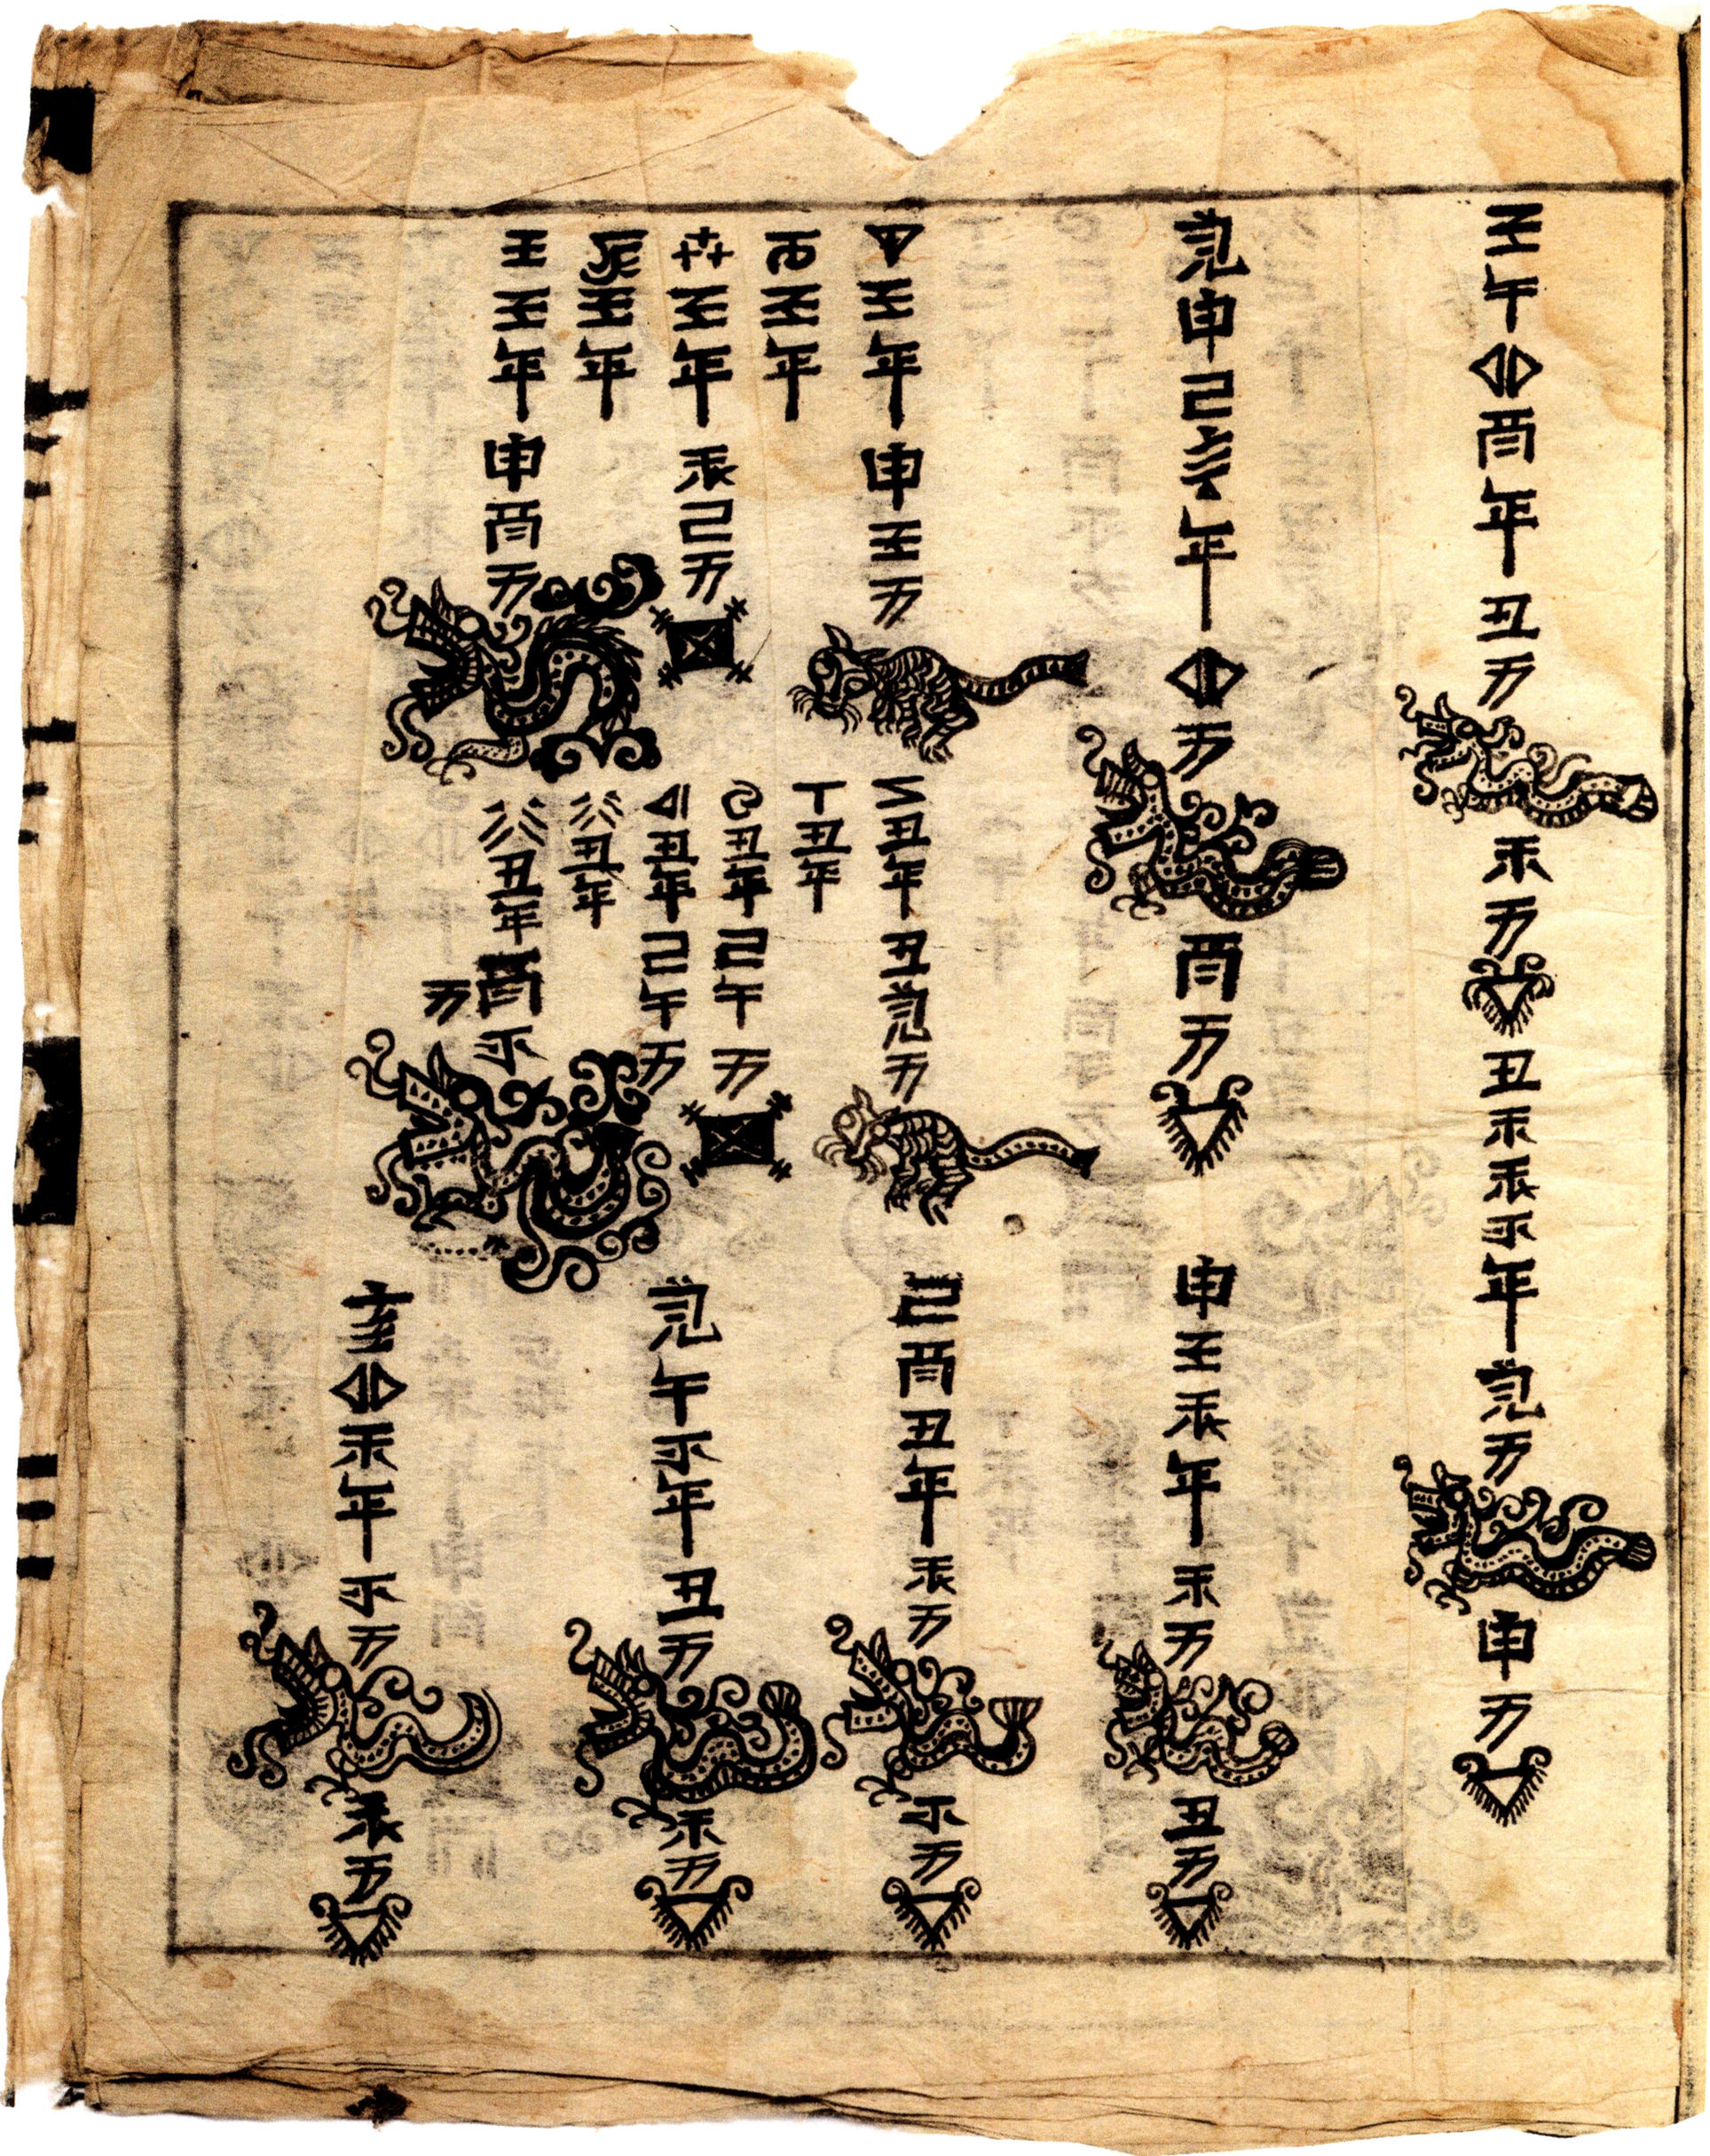 子午卯酉年丑方
未方
丑未辰戌年寅方
申方
寅申巳亥年卯方
酉方
甲子年申子方
丙子年
戊子年辰巳方
庚子年
壬子年申酉方
乙丑年丑寅方
丁丑年
己丑年巳午方
丑年巳午方
癸丑年
丑年酉戌方
申子辰年未方
丑方
巳酉丑年辰方
戌方
寅午戌年丑方
未方
亥卯未年戌方
辰方